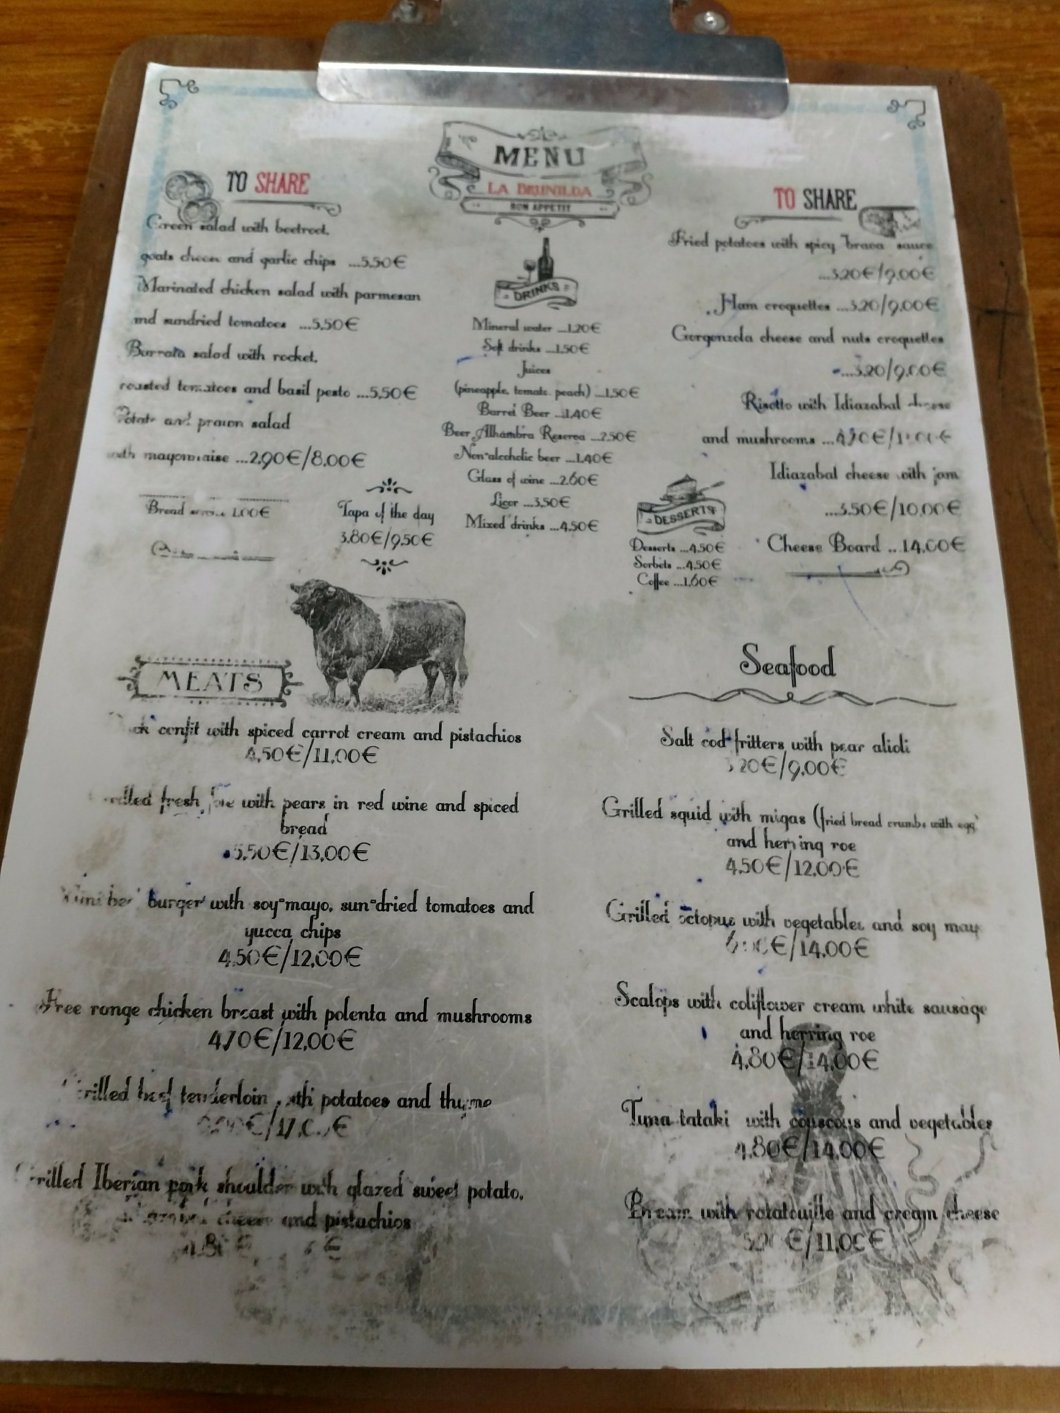 MENU
LA BRUNILDA
BON APPETIT
TO SHARE
Green salad with beetroot,
goats cheese and garlic chips ...5,50€
Marinated chicken salad with parmesan
and sundried tomatoes ...5,50€
Burrata salad with rocket,
roasted tomatoes and basil pesto ...5,50€
Potato and prawn salad
with mayonnaise ...2,90€/8,00€
Bread service 1,00€
Tapa of the day
3,80€/9,50€
DRINKS
Mineral water ...1,20€
Soft drinks ...1,50€
Juices
(pineapple, tomato, peach) ...1,50€
Barrel Beer ...1,40€
Beer Alhambra Reserva ...2,50€
Non-alcoholic beer ...1,40€
Glass of wine ...2,60€
Licor ...3,50€
Mixed drinks ...4,50€
TO SHARE
Fried potatoes with spicy "brava" sauce
...3,20€/9,00€
Ham croquettes ...3,20/9,00€
Gorgonzola cheese and nuts croquettes
...3,20/9,00€
Risotto with Idiazabal cheese
and mushrooms
Idiazabal cheese with jam
...3,50€/10,00€
Cheese Board ...14,00€
DESSERTS
Desserts ...4,50€
Sorbets ...4,50€
Coffee ...1,60€
MEATS
confit with spiced carrot cream and pistachios
4,50€/11,00€
Grilled fresh foie with pears in red wine and spiced
bread
5,50€/13,00€
burger with soy-mayo, sun-dried tomatoes and
yucca chips
4,50€/12,00€
Free range chicken breast with polenta and mushrooms
4,70€/12,00€
Grilled beef tenderloin with potatoes and thyme
Grilled Iberian pork shoulder with glazed sweet potato,
cheese and pistachios
Seafood
Salt cod fritters with pear alioli
3,20€/9,00€
Grilled squid with migas (fried bread crumbs with egg)
and herring roe
4,50€/12,00€
Grilled octopus with vegetables and soy may
/14,00€
Scalops with coliflower cream white sausage
and herring roe
4,80€/14,00€
Tuna tataki with couscous and vegetables
4,80€/14,00€
Bream with ratatouille and cream cheese
/11,00€